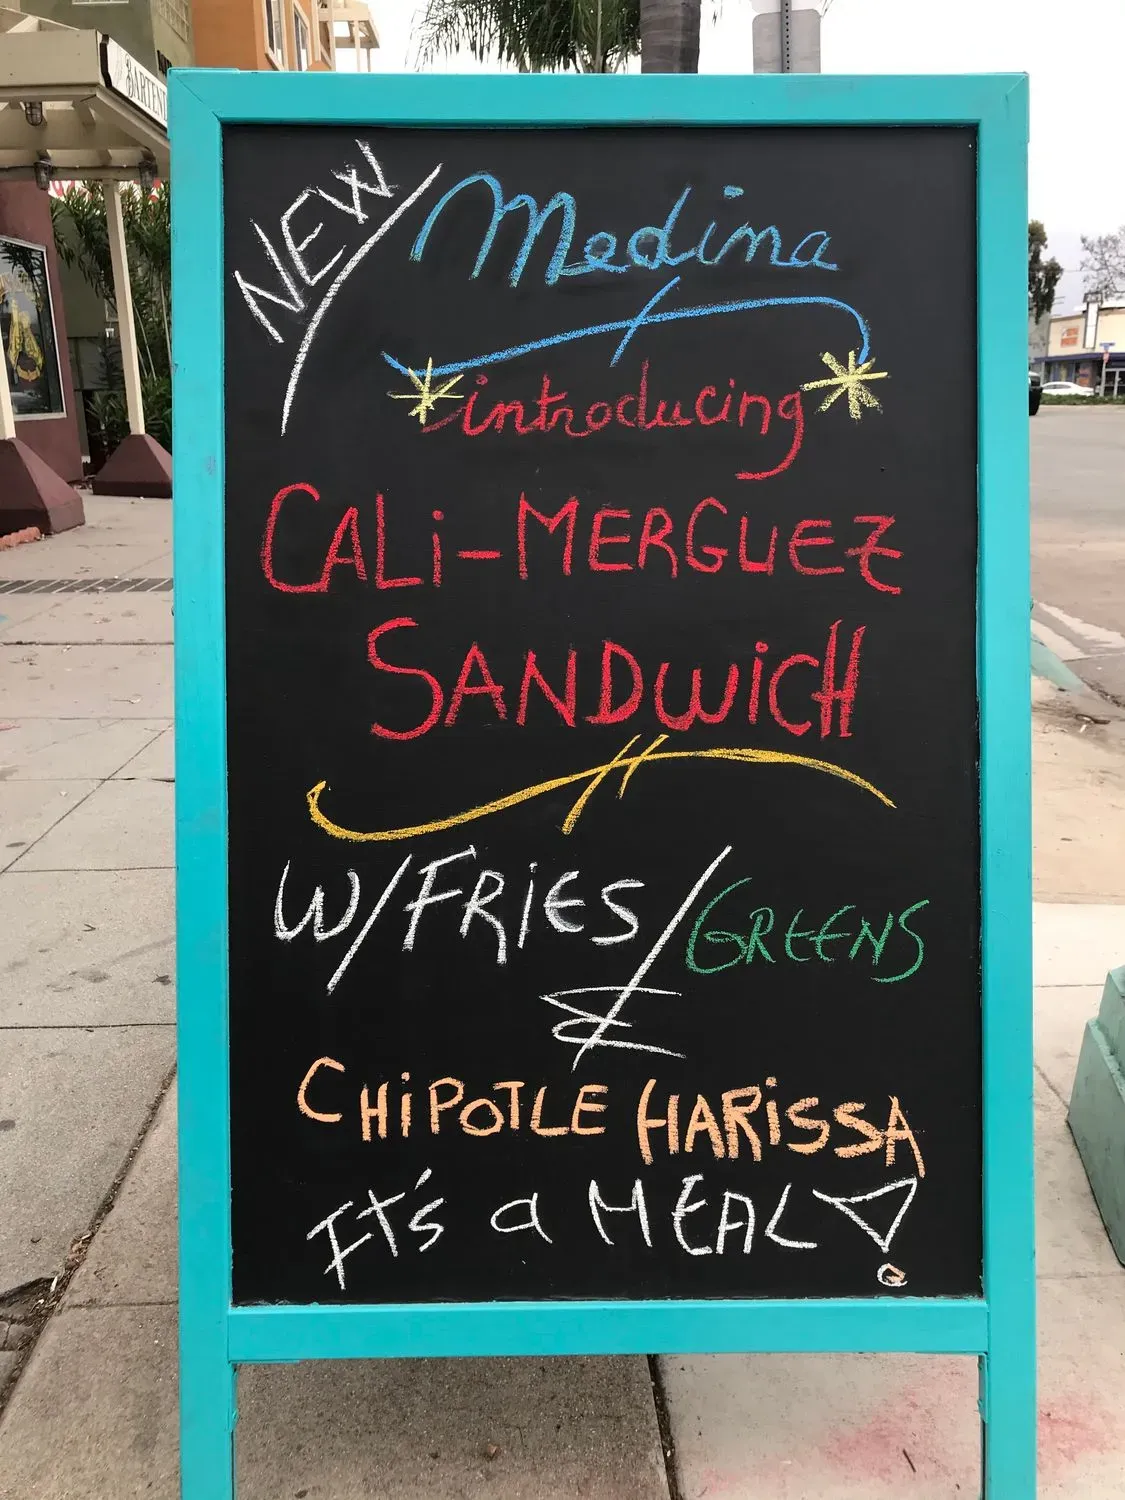 BARTEND
NEW
Medina
introducing
CALi-MERGUEZ
SANDWiCH
W/FRiES/GREENS
&
CHiPOTLE HARiSSA
It's a MEAL!